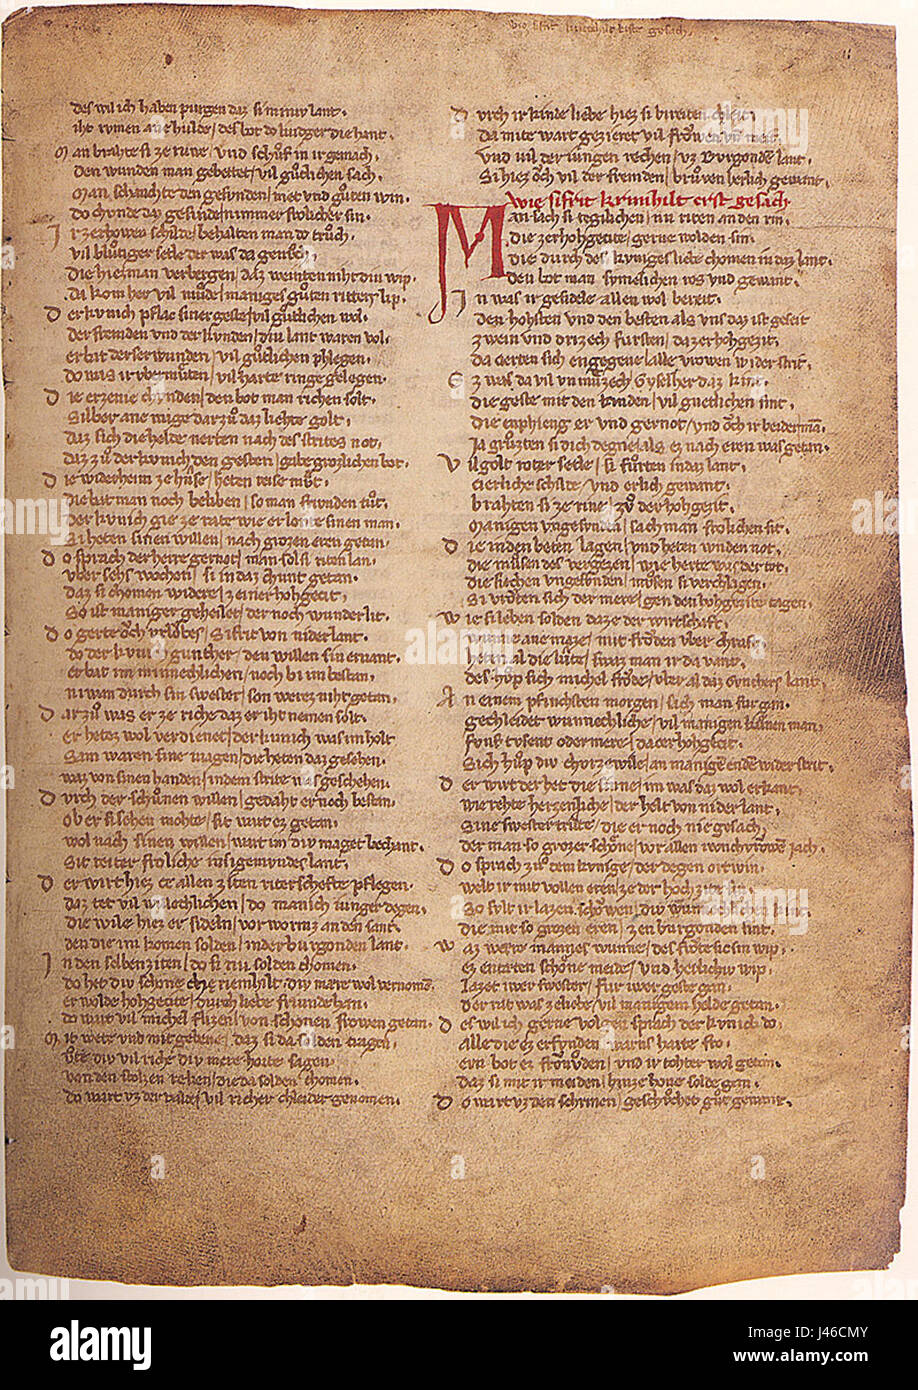 des wil ich haben purgen daz si mir min lant
ir rvmen ane hulde / des bot do ludger die hant.
Man brahte si ze ruwe / vnd schuof in ir gemach /
den wunden man gebettet / vil guotlichen sach /
man schanchte den gesunden / met vnd guoten win /
do chunde daz gesinde / nimmer frolicher sin.
Ir zerhowen schilde / behalten man do truoch /
vil bluotiger setele der was da genuoch
die hiez man verbergen / daz weinten niht div wip /
da kom her vil muode / maniges guoten ritters lip.
Der kvnich pflac siner geste / vil guotlichen wol /
der fremden vnd der kvnden / div lant waren vol /
er bat der serwunden / vil guotlichen phlegen /
do was ir vbermuoten / vil harte ringe gelegen.
Die erzenie chvnden / den bot man richen solt /
silber ane wage dar zuo daz liehte golt /
daz sich die helde nerten nach des strites not /
daz zuo der kvnich den gesten / gabe grozlichen bot.
Die wider heim ze huse / heten reise muot /
die bat man noch beliben / so man frunden tuot /
der kvnich gie ze rate wie er lonte sinen man /
si heten sinen willen / nach grozen eren getan.
Do sprach der herre gernot / man sol si riten lan /
vber sehs wochen / si in daz chunt getan /
daz si chomen widere / zeiner hohgecit /
so ist maniger geheilet / der noch wunder lit.
Do gerte ovch vrlobes / Sifrit von niderlant /
do der kvnich gunther / den willen sin ervant /
er bat in minnechlichen / noch bi im bestan /
niwan durch sin swester / son werez niht getan.
Dar zuo was er ze riche daz er iht nemen solt /
er hetez wol verdienet / der kunich was im holt
Sam waren sine magen / die heten daz gesehen /
waz von sinen handen / in dem strite was geschehen.
Durch der schonen willen / gedaht er noch bestan /
ob er si sehen mohte / sit wart ez getan /
wol nach sinen willen / wart im div maget bechant /
sit reiter froliche in sigemundes lant.
Der wirt hiez ce allen ziten riterschefte pflegen /
daz tet vil willechlichen / do manich iunger degen /
die wile hiez er sideln / vor wormz an den sant /
den die im komen solden / in der burgonden lant.
In den selben ziten / do si nu solden chomen /
do het div schone chriemhilt / div mare wol vernomen
er wolde hohgecite / durch liebe frunde han /
do wart vil michel flizen / von schonen frowen getan.
Mit wete vnd mit gebende / daz si da solden tragen /
vote div vil riche div mere horte sagen /
von den stolzen reken / die da solden chomen /
do wart vz der valde / vil richer chleider genomen.
Durch ir kinde liebe hiez si bereiten chleit /
da mite wart gezieret vil frowen vnd meit /
vnd vil der iungen rechen / vz Burgonden lant /
Si hiez ovch vil der fremden / bruven herlich gewant.
Wie sifrit krimhilt erst gesach
Man sach si tegelichen / nu riten an den rin /
die zer hohgecite / gerne wolden sin /
die durch des kvniges liebe chomen in daz lant /
den bot man svmelichen ros vnd gewant.
In was ir gesidele allen wol bereit /
den hohsten vnd den besten als vns daz ist geseit
zwein vnd drizech fursten / da zer hohgezit /
da cierten sich engegene / alle vrowen wider strit.
Ez was da vil vnmuozech / Gyselher daz kint /
die geste mit den kunden / vil guetlichen sint /
die enphieng er vnd gernot / vnd ovch ir beider man /
ia gruozten si die degene / als ez nach eren was getan.
Vil golt roter setele / si fuorten in daz lant /
cierliche schilde vnd erlich gewant /
brahten si ze rine / zuo der hohgezit /
manigen vngesunden / sach man frolichen sit.
Die in den beten lagen / vnd heten wnden not /
die musen des vergezen / wie herte was der tot /
die siechen vngesunden / muosen si verchlagen /
si vroten sich der mere / gen den hohgezite tagen.
Wie si leben solden da ze der wirtschaft /
wunne ane maze / mit froden vber chraft /
heten al die liute / swaz man ir da vant /
des huop sich michel frode / vber al daz Gunthers lant.
An einem pfinchsten morgen / sach man fur gan /
gechleidet wunnechliche / vil manigen kuenen man /
funf tusent oder mere / da ce der hohgecit /
Sich huop div chorzewile / an manigem ende wider strit.
Der wirt der het die sinne / im was daz wol erkant /
wie rehte herzenliche / der helt von niderlant /
Sine swester trute / die er noch nie gesach /
der man so grozer schone / vor allen iunchvrowen iach.
Do sprach zuo dem kvnige / der degen ortwin /
welt ir mit vollen eren / ze der hochzite sin /
So sult ir lazen schowen / div wunnechlichen kint /
die mit so grozen eren / zen burgonden sint.
Waz were mannes wunne / des frote sich sin wip /
ez entæten schone meide / vnd herlichiv wip /
lazet iwer swester / fur iwer geste gan /
der rat was ze liebe / vil manigem helde getan.
Des wil ich gerne volgen sprach der kvnich do /
alle die ez erfunden / warns harte fro /
ern bot ez fron vuoten / vnd ir tohter wol getan /
daz si mit ir meiden / hin ze hove solde gan.
Do wart vz den schrinen / gesuochet guot gewant.
alamy
Image ID: J46CMY
www.alamy.com